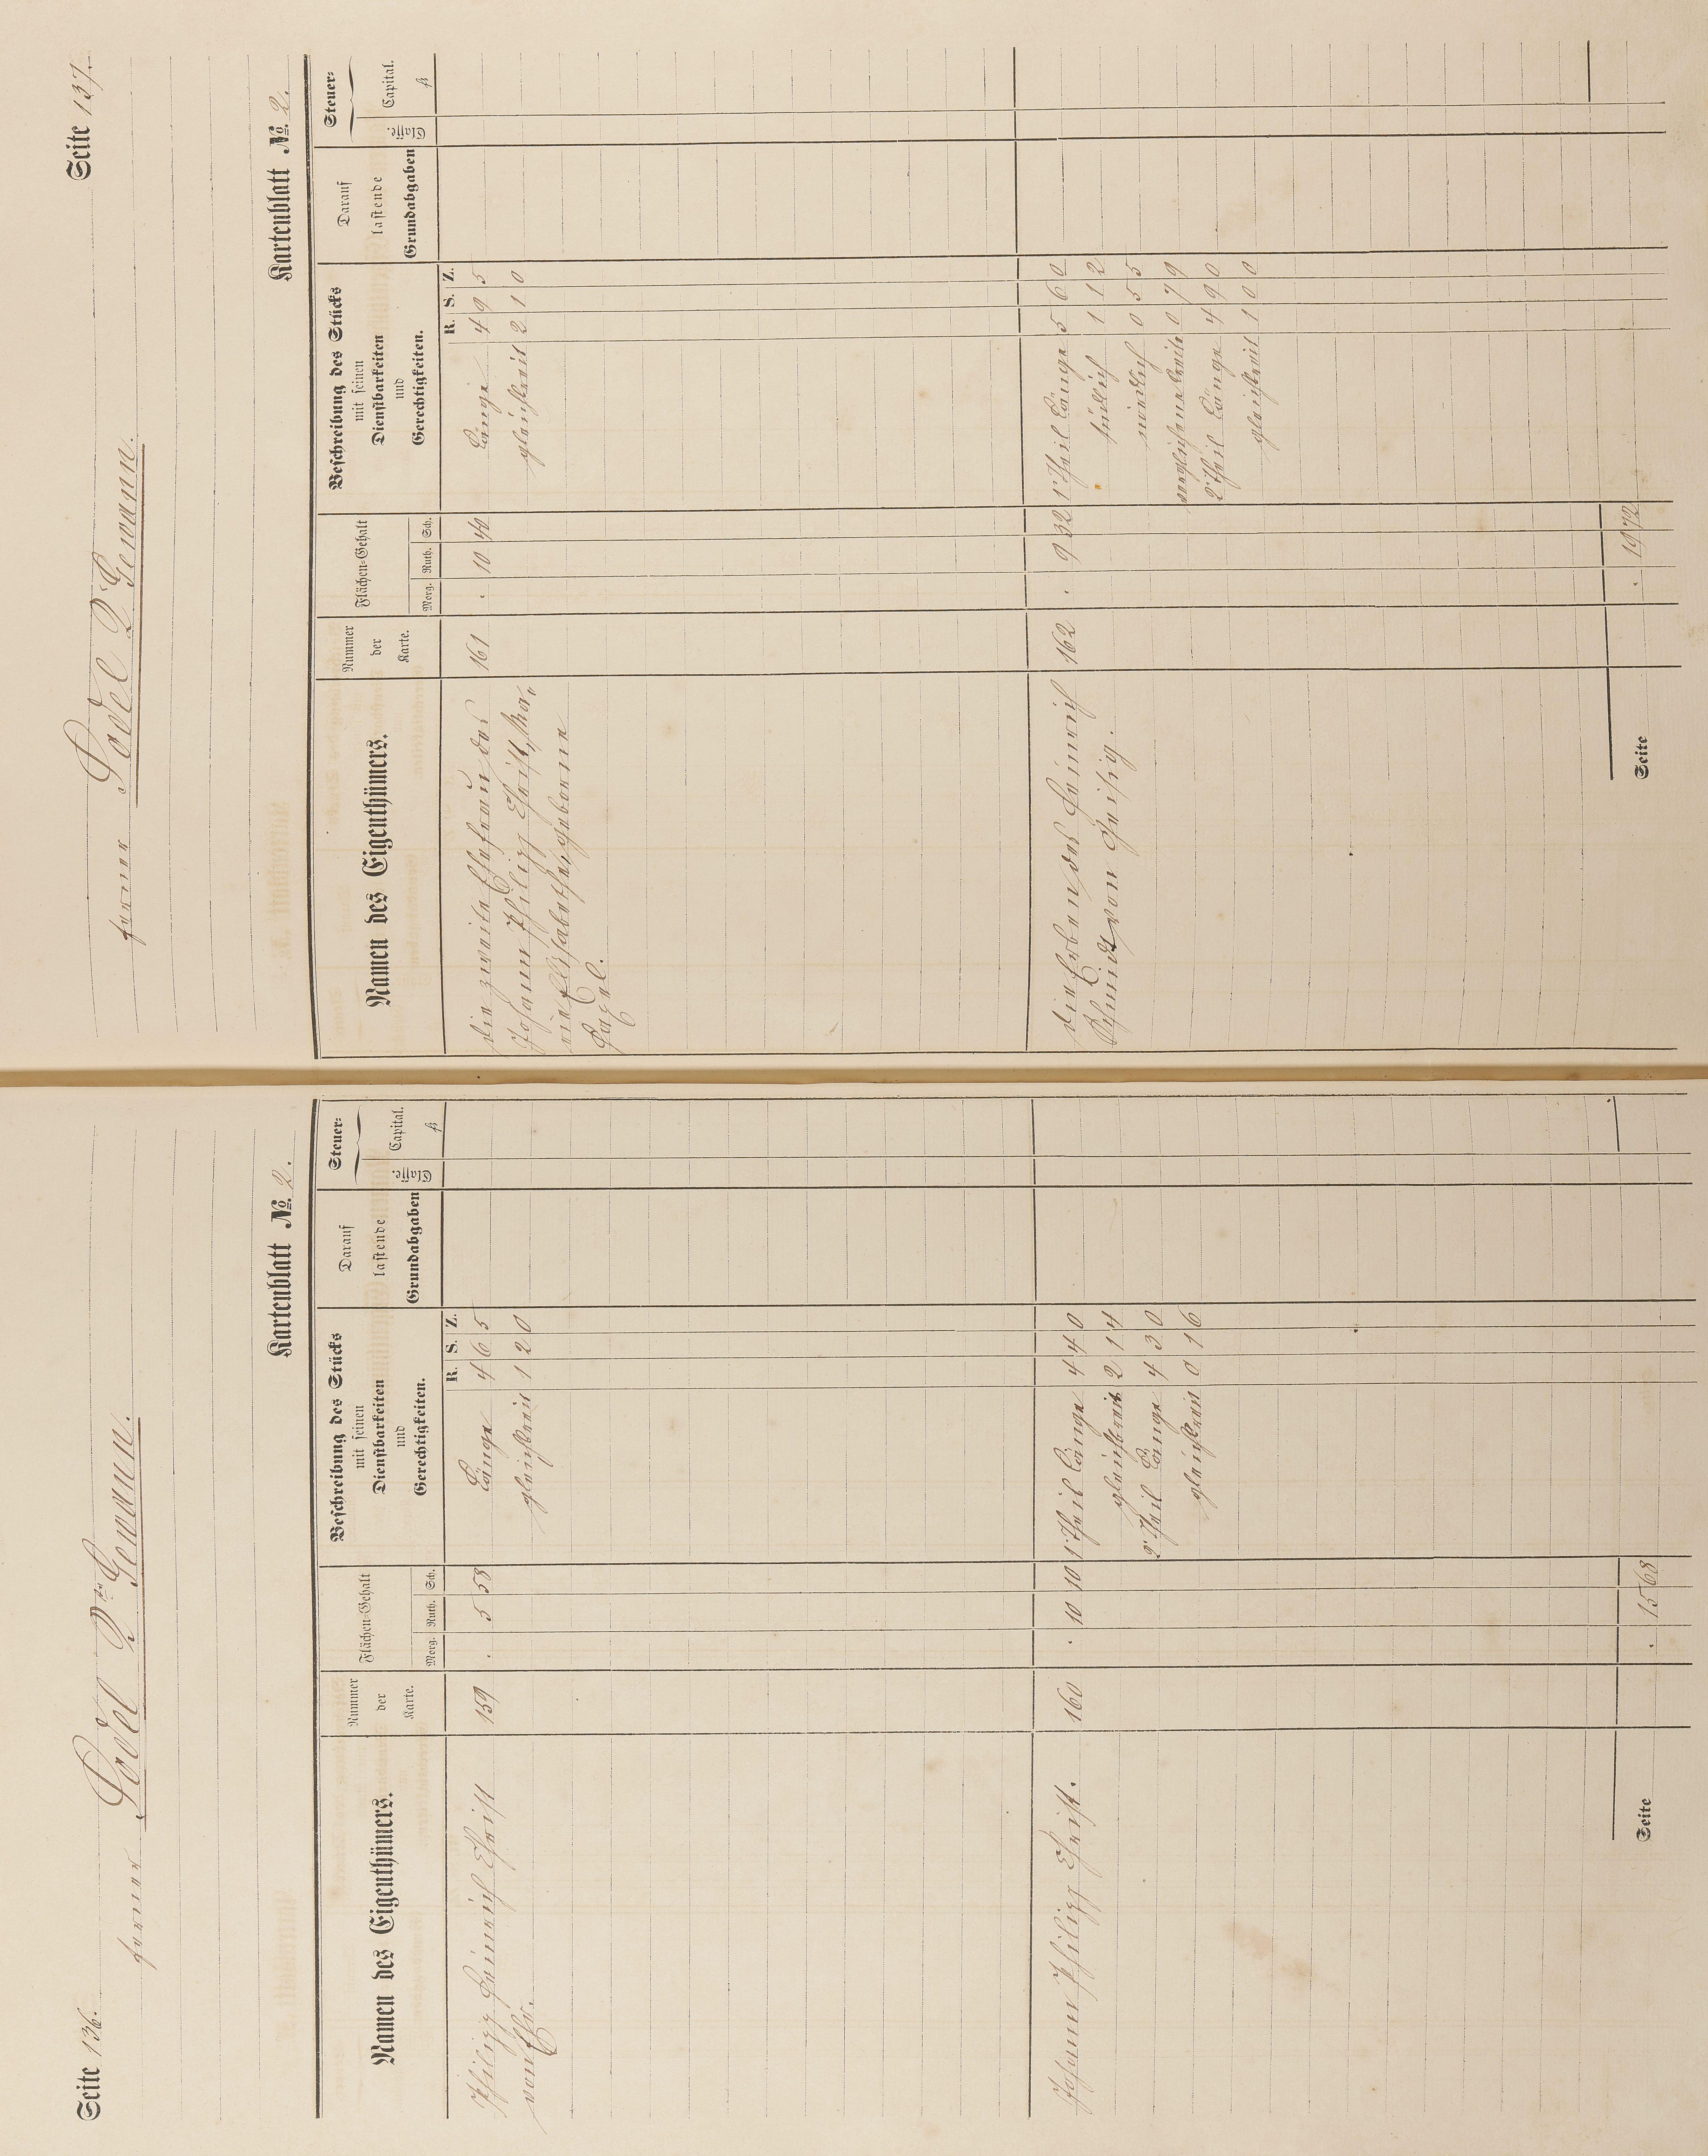 Seite 136.
ferner Sodel 2te Gewann.
Kartenblatt No. 2.
Namen des Eigenthümers.
Nummer der Karte.
Flächen-Gehalt
Morg. Ruth. Sch.
Beschreibung des Stücks
mit seinen
Dienstbarkeiten
und
Gerechtigkeiten.
Darauf
lastende
Grundabgaben
Steuer-
Classe. Capital.
fl
R. S. Z.
Philipp Heinrich Christ 159 . 5 58 Länge 4 6 5
von hier. gleichbreit 1 2 0
Johann Philipp Christ. 160 . 10 10 1r Theil Länge 4 4 0
gleichbreit 2 1 4
2r Theil Länge 4 3 0
gleichbreit 0 1 6
Seite . 15 68
Seite 137.
ferner Sodel 2te Gewann.
Kartenblatt No. 2.
Namen des Eigenthümers.
Nummer der Karte.
Flächen-Gehalt
Morg. Ruth. Sch.
Beschreibung des Stücks
mit seinen
Dienstbarkeiten
und
Gerechtigkeiten.
Darauf
lastende
Grundabgaben
Steuer-
Classe. Capital.
fl
R. S. Z.
die zweite Ehefrau des 161 . 10 40 Länge 4 9 5
Johann Philipp Christ, Ma- gleichbreit 2 1 0
rie Elisabethe, geborne
die Erben des Heinrich 162 . 9 32 1r Theil Länge 5 6 0
Schmidt von südlich 1 1 2
nördlich 0 5 5
verglichene breite 0 7 9
2r Theil Länge 4 9 0
gleichbreit 1 0 0
Seite . 19 72